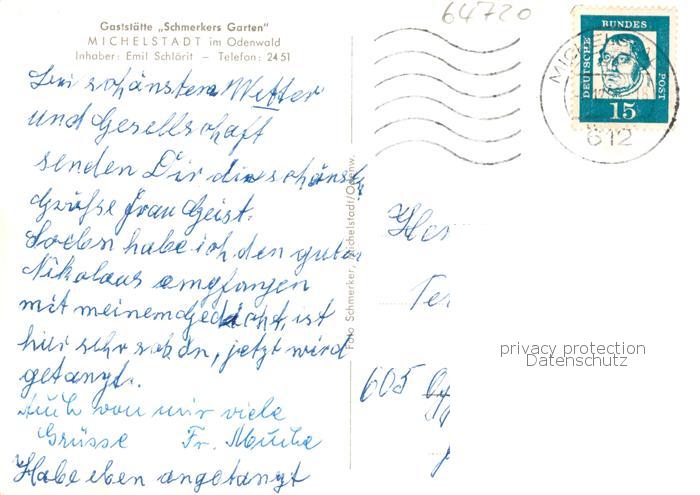 64720
Gaststätte „Schmerkers Garten"
MICHELSTADT im Odenwald
Inhaber: Emil Schlörit – Telefon: 24 51
DEUTSCHE BUNDES POST
15
612
Bei schönstem Wetter
und Gesellschaft
senden Dir die schönst
Grüsse Frau Geist.
Soeben habe ich den guten
Nikolaus empfangen
mit meinem Gedicht, ist
hier sehr schön, jetzt wird
getanzt.
Auch von mir viele
Grüsse Fr.
Habe eben angetanzt
Foto Schmerker, Michelstadt/Odenw.
Her
605
privacy protection
Datenschutz